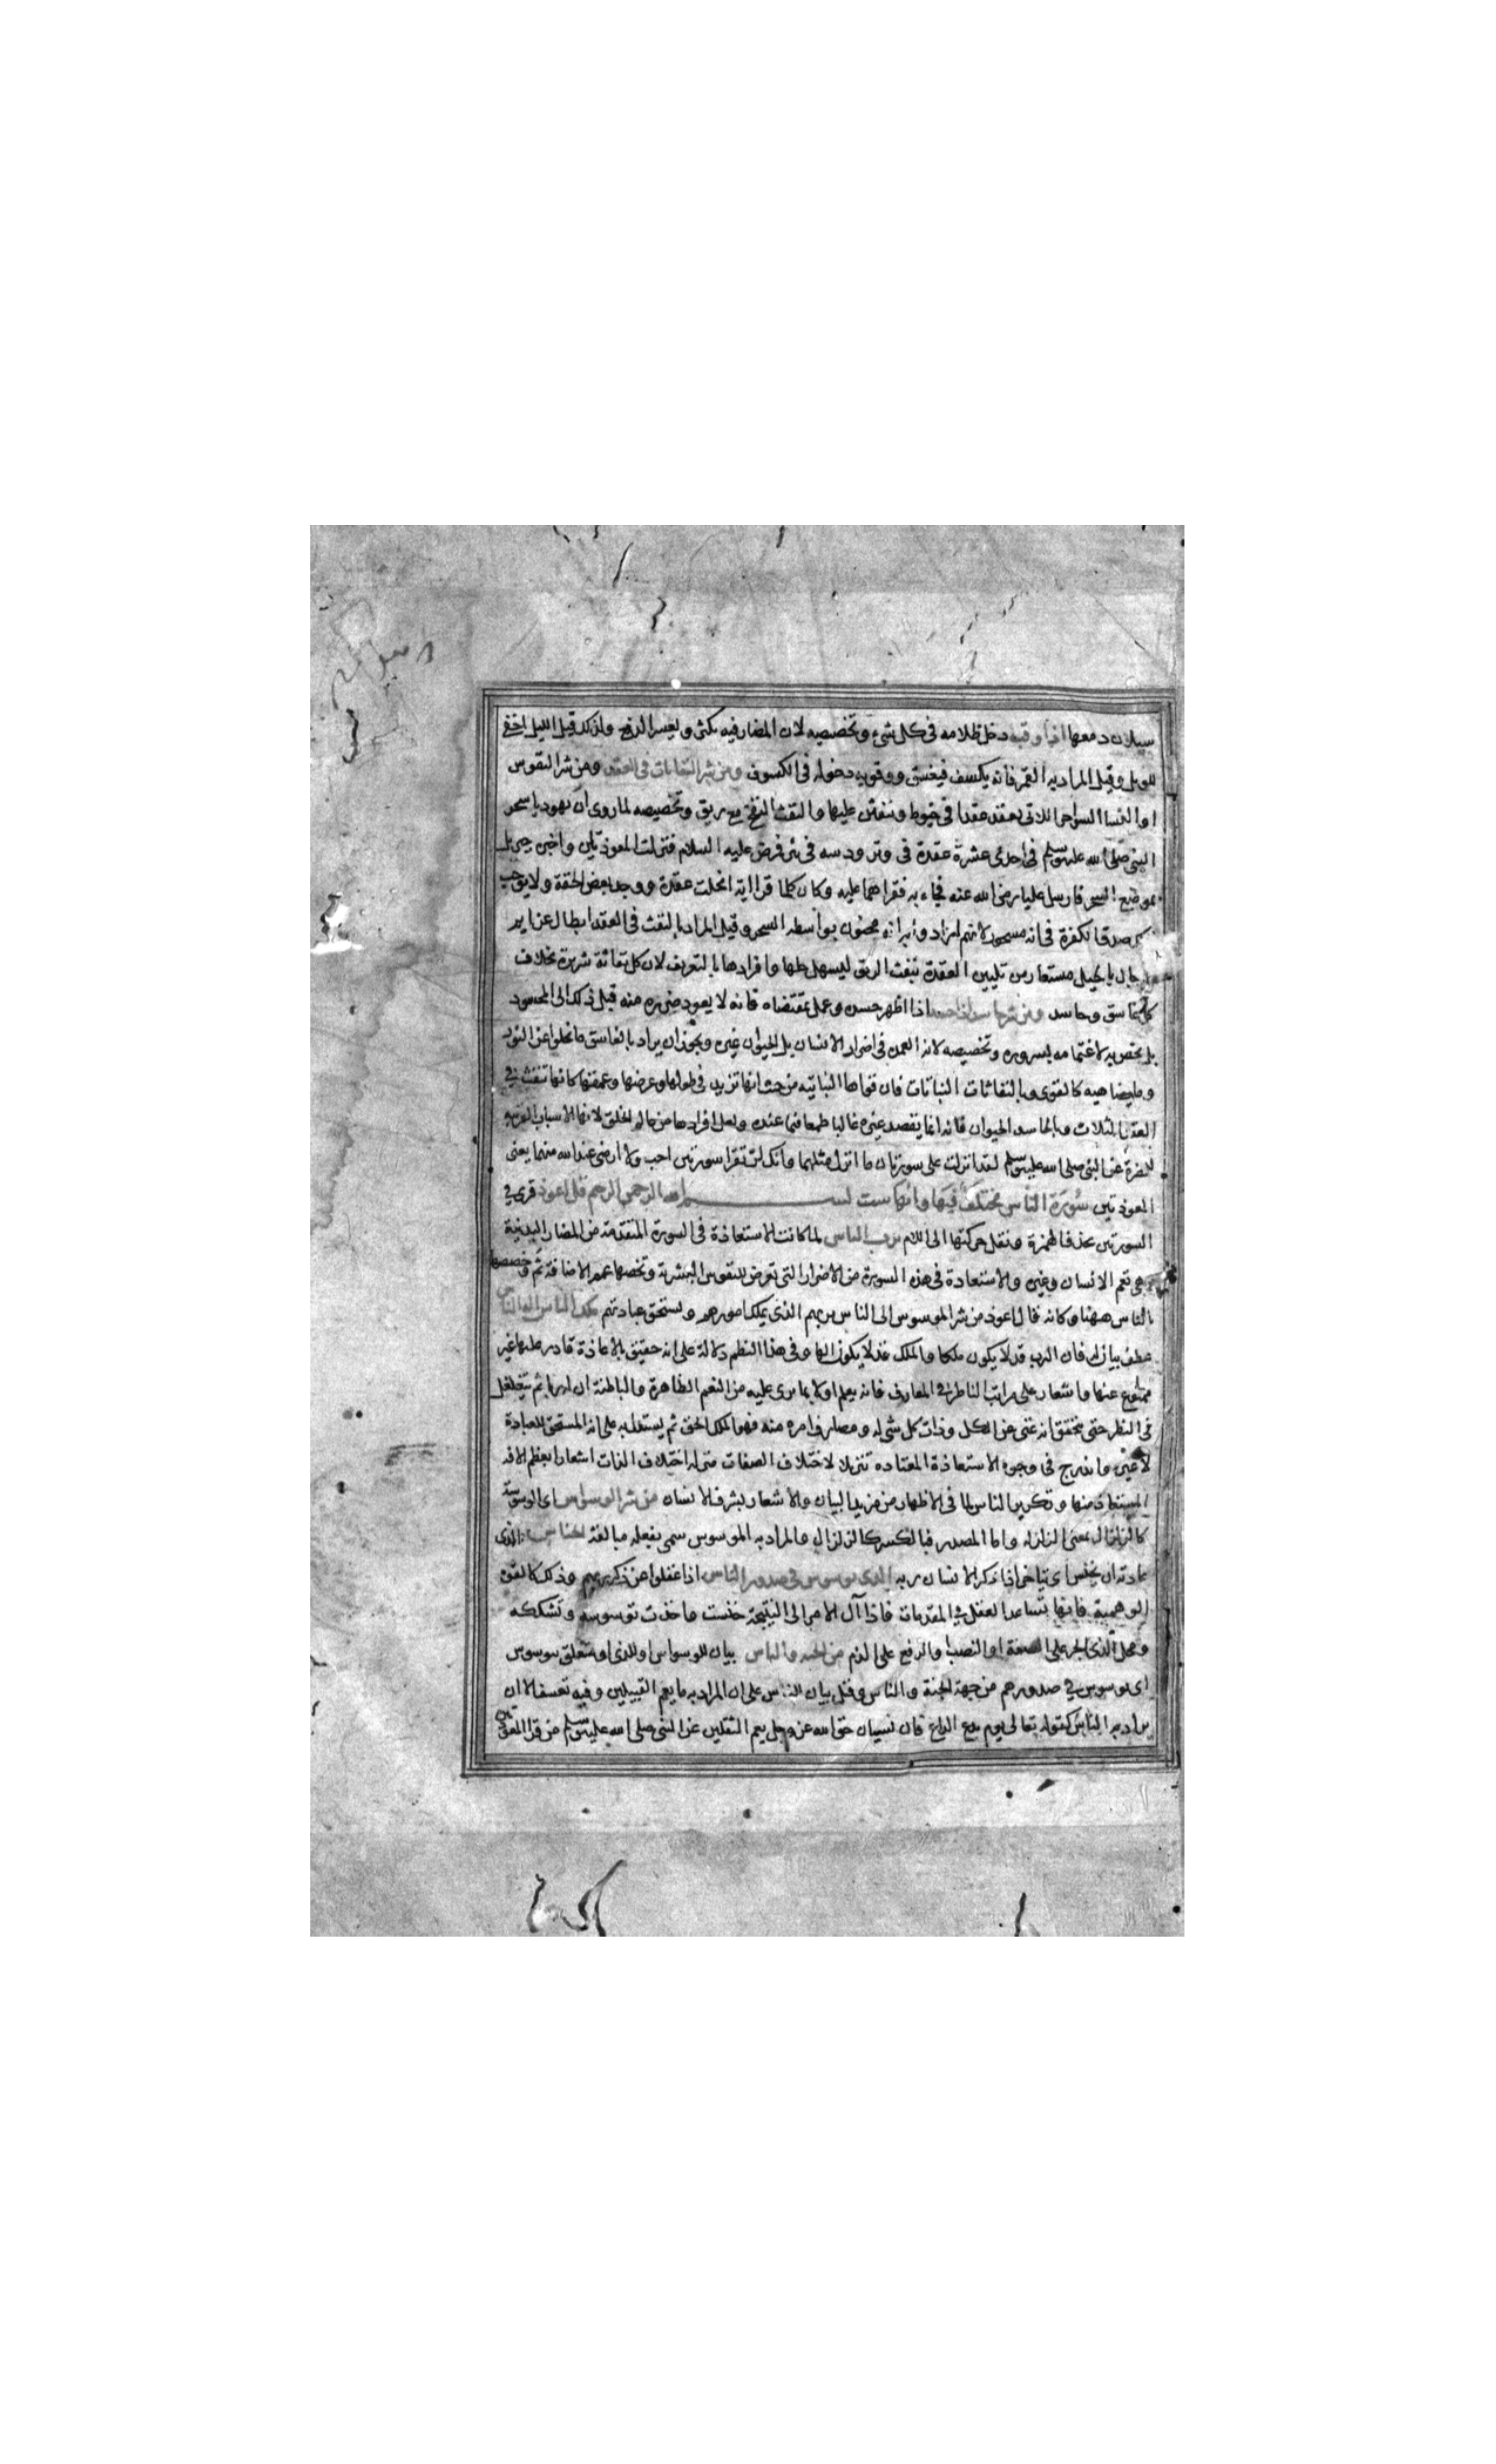 سيلان دمعها اذا وقب دخل ظلامه فى كل شىء وتخصيصه لان المضار فيه تكثر ويعسر الدفع ولذلك قيل الليل اخفى
للويل وقيل المراد به القمر فانه يكسف فيغسق ووقوبه دخوله فى الكسوف ومن شر النفاثات فى العقد ومن شر النفوس
او النسا السواحر اللاتى يعقدن عقدا فى خيوط وينفثن عليها والنفث النفخ مع ريق وتخصيصه لما روى ان يهوديا سحر
النبى صلى الله عليه وسلم فى احدى عشرة عقدة فى وتر ودسه فى بئر فمرض عليه السلام فنزلت المعوذتين واخبره جبريل
بموضع السحر فارسل عليا رضى الله عنه فجاء به فقراهما عليه وكان كلما قرا اية انحلت عقدة ووجد بعض الخفة ولا يوجب
صدق الكفرة فى انه مسحور لانهم ارادوا به انه مجنون بواسطه السحر وقيل المراد بالنفث فى العقد ابطال عزايم
الرجال بالحيل مستعار من تليين العقدة بنفث الريق ليسهل حلها وافرادها بالتعريف لان كل نفاثة شريرة بخلاف
كل غاسق وحاسد ومن شر حاسد اذا حسد اذا اظهر حسده وعمل بمقتضاه فانه لا يعود ضرره منه قبل ذلك الى المحسود
بل يخص به لاغتمامه بسروره وتخصيصه لانه العمدة فى اضرار الانسان بل الحيوان غيره ويجوز ان يراد بالغاسق ما يخلو عن النور
وما يضاهيه كالقوى وبالنفاثات النباتات فان قواها النباتيه من حيث انها تزيد فى طولها وعرضها وعمقها كانها تنفث فى
العقد الثلاث وبالحاسد الحيوان فانه انما يقصد غيره غالبا طمعا فيما عنده ولعل افرادها من عالم الخلق لانها الاسباب القريبه
للمضرة عن النبى صلى الله عليه وسلم لقد انزلت على سورتان ما انزل مثلهما وانك لن تقرا سورتين احب ولا ارضى عند الله منهما يعنى
المعوذتين سورة الناس مختلف فيها وايها ست بسم الله الرحمن الرحيم قل اعوذ قرئ فى
السورتين بحذف الهمزة ونقل حركتها الى اللام برب الناس لما كانت الاستعاذة فى السورة المتقدمة من المضار البدنية
وهى تعم الانسان وغيره والاستعاذة فى هذه السورة من الاضرار التى تعرض للنفوس البشرية وتخصها عمم الاضافة ثم وخصصها
بالناس ههنا وكانه قال اعوذ من شر الموسوس الى الناس بربهم الذى يملك امورهم ويستحق عبادتهم ملك الناس اله الناس
عطف بيان له فان الرب قد لا يكون ملكا والملك قد لا يكون الها وفى هذا النظم دلالة على انه حقيق بالاعاذة قادر عليها غير
ممنوع عنها واشعار على مراتب الناظر فى المعارف فانه يعلم اولا بما يرى عليه من النعم الظاهرة والباطنة ان له ربا ثم يتغلغل
فى النظر حتى يتحقق انه غنى عن الكل وذات كل شى له ومصارف امره منه فهو الملك الحق ثم يستدل به على انه المستحق للعبادة
لا غير وتدرج فى وجوه الاستعاذة المعتاده تنزيلا لاختلاف الصفات منزلة اختلاف الذات اشعارا بعظم الافة
المستعاذ منها وتكرير الناس لما فى الاظهار من مزيد البيان والاشعار بشرف الانسان من شر الوسواس اى الوسوسة
كالزلزال بمعنى الزلزله واما المصدر فبالكسر كالزلزال والمراد به الموسوس سمى بفعله مبالغة الخناس الذى
عادته ان يخنس اى يتاخر اذا ذكر الانسان ربه الذى يوسوس فى صدور الناس اذا غفلوا عن ذكر ربهم وذلك كالقوة
الوهمية فانها تساعد العقل فى المقدمات فاذا آل الامر الى النتيجة خنست واخذت توسوسه وتشككه
ومحل الذى الجر على الصفة او النصب والرفع على الذم من الجنه والناس بيان للوسواس او للذى او متعلق بيوسوس
اى يوسوس فى صدورهم من جهة الجنة والناس وقيل بيان للناس على ان المراد به ما يعم القبيلين وفيه تعسف الا ان
يراد به الناس كقوله تعالى يوم يدع الداع فان نسيان حق الله عز وجل يعم الثقلين عن النبى صلى الله عليه وسلم من قرا المعوذتين